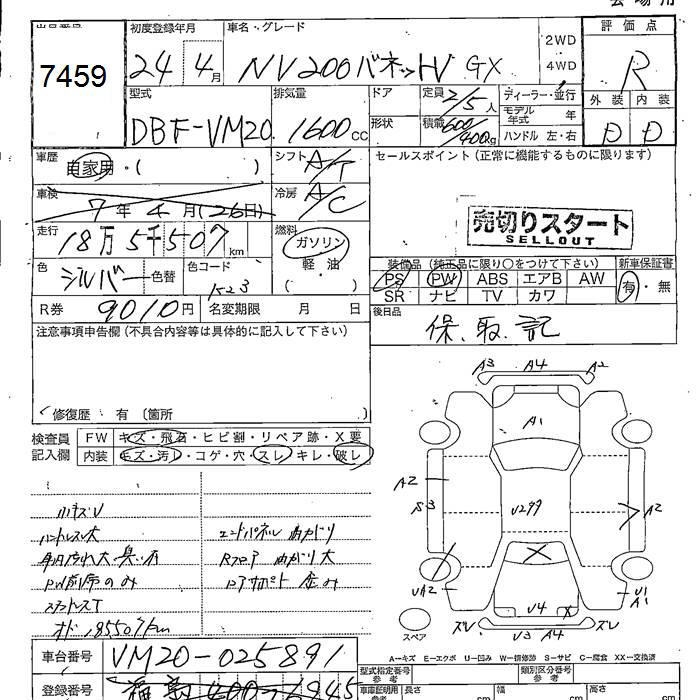 7459
初度登録年月 車名・グレード 評価点
24年 4月 NV200バネットV GX 2WD 4WD R
型式 排気量 ドア 定員 2/5人 ディーラー・並行 外装 内装
DBF-VM20 1600cc 形状 積載 600/400kg モデル年式 年 D D
ハンドル 左・右
車歴 自家用・( ) シフト A/T セールスポイント(正常に機能するものに限ります)
車検 7年 4月(26日) 冷房 A/C
売切りスタート
SELLOUT
走行 18万5千507km 燃料 ガソリン
軽・油
( )
色 シルバー 色替 色コード K23
装備品(純正品に限り○をつけて下さい) 新車保証書
PS PW ABS エアB AW 有・無
SR ナビ TV カワ
R券 9010円 名変期限 月 日 後日品 保、取、記
注意事項申告欄(不具合内容等は具体的に記入して下さい)
修復歴 有 〔箇所 〕
検査員 FW キズ・飛石・ヒビ割・リペア跡・X要
記入欄 内装 キズ・汚レ・コゲ・穴・スレ・キレ・破レ
小キズU
ハンドルスレ大
エンドパネル曲がり
Rフロア曲がり大
A3 A4 A2
A1
A2
S3
U299
A2
UA2
U4 X
U1
A1
スレ U3 A4 スレ
スペア
A=キズ E=エクボ U=凹み W=補修跡 S=サビ C=腐食 XX=交換済
車台番号 VM20-025891
型式指定番号 類別区分番号
参考 参考
登録番号
車庫証明用
参考
長さ cm 幅 cm 高さ cm